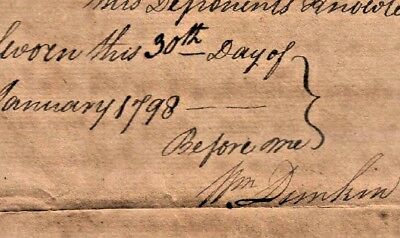 this Deponents Knowle
Sworn this 30th Day of
January 1798 —
Before me
Wm Dunkin